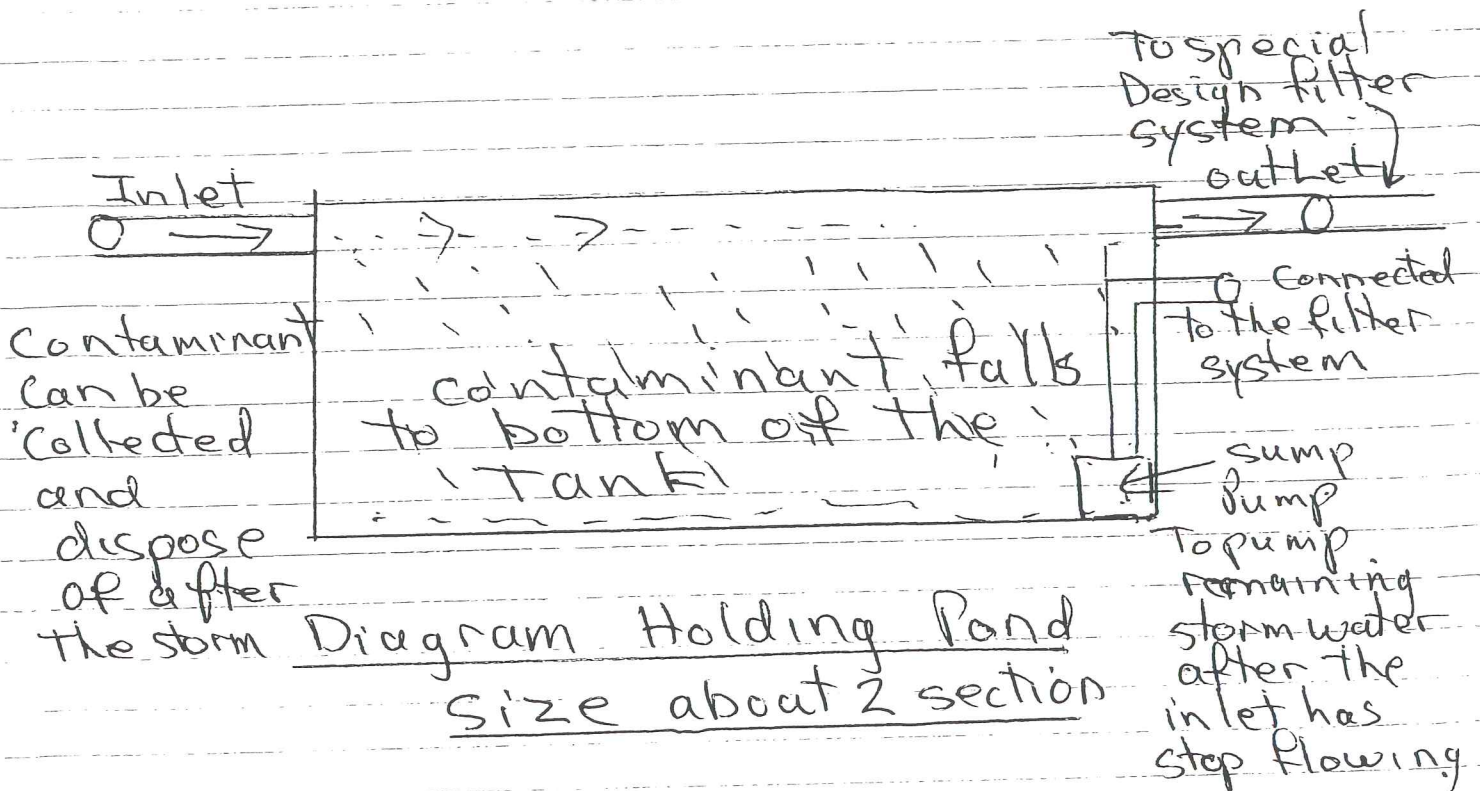 To special
Design filter
system
outlet
Inlet
Connected
to the filter
system
Contaminant
Can be
Collected
and
dispose
of after
the storm
contalminant falls
to bottom of the
Tank
sump
Pump
To pump
remaining
storm water
after the
inlet has
stop flowing
Diagram Holding Pond
size about 2 section